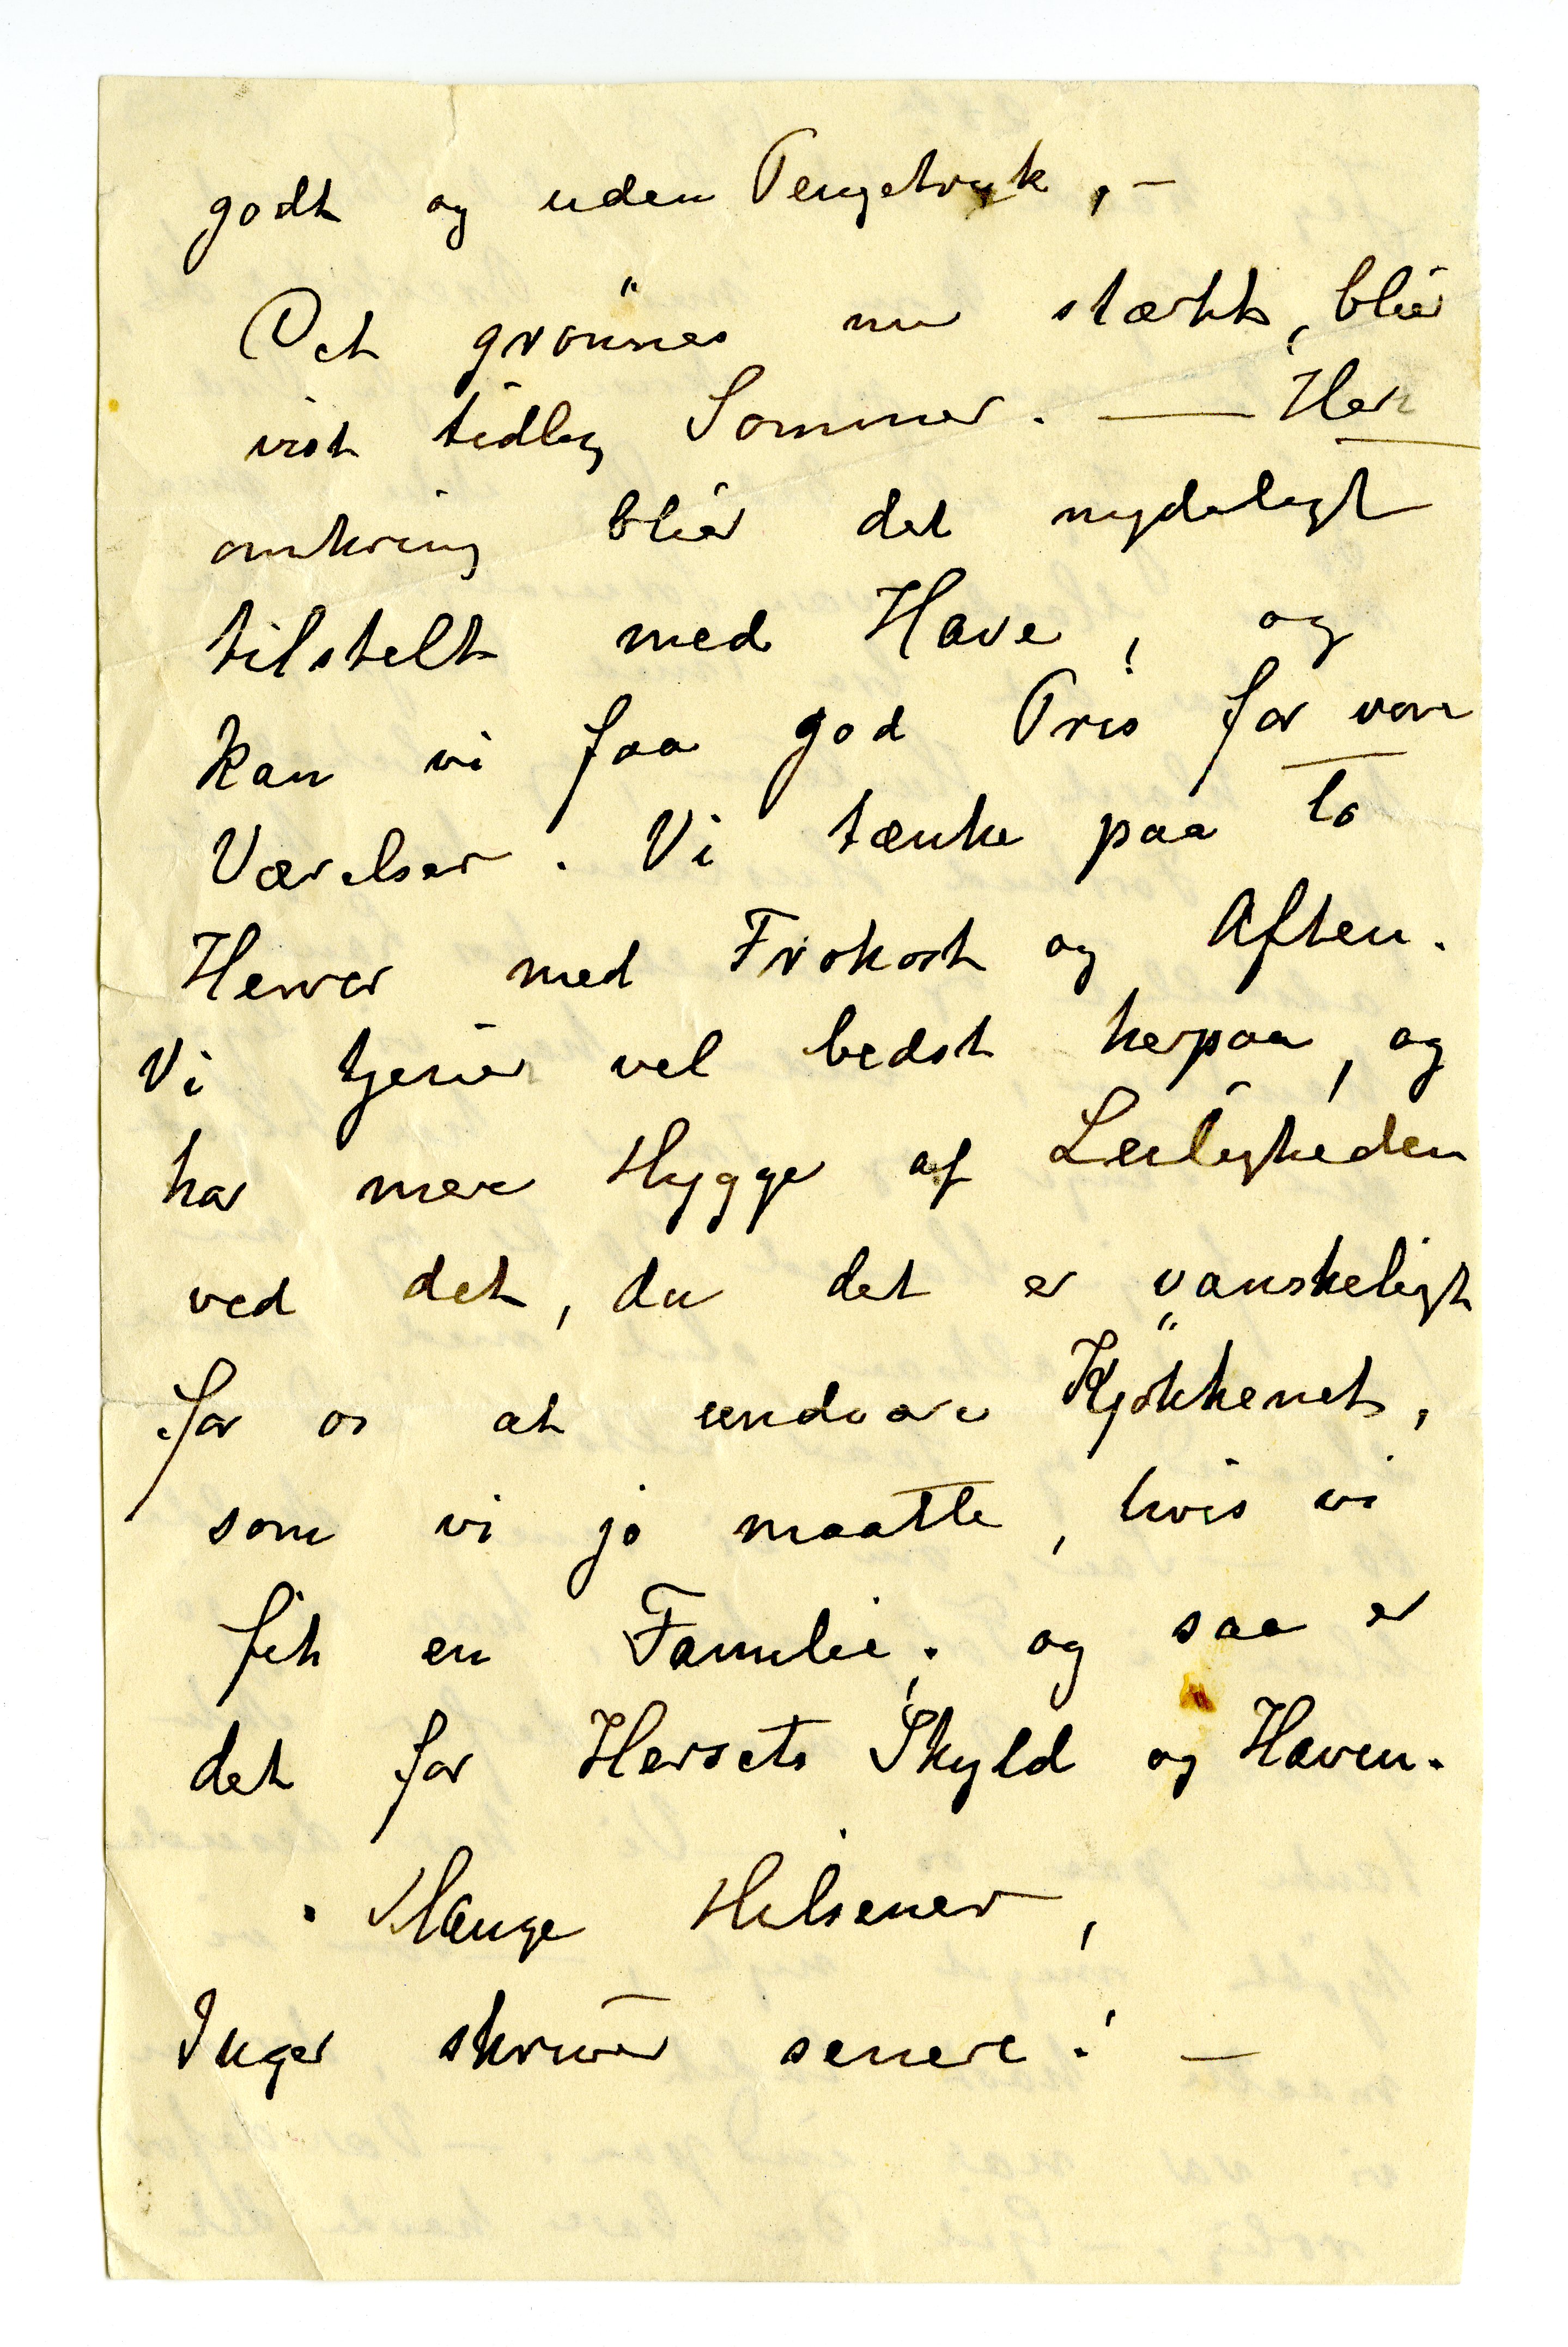 godt og uden Pengetryk, —
Det grönnes nu stærkt, blir
vist tidlig Sommer. — Her
omkring blir det nydeligt
tilstelt med Have, og
kan vi faa god Pris for vore
Værelser. Vi tænke paa to
Herrer med Frokost og Aften.
Vi tjener vel bedst herpaa, og
har mere Hygge af Leiligheden
ved det, da det er vanskeligt
for os at undvære Kjökkenet,
som vi jo maatte, hvis vi
fik en Familie; og saa er
det for Husets Skyld og Haven.
Mange Hilsener,
Inger skriver senere! —